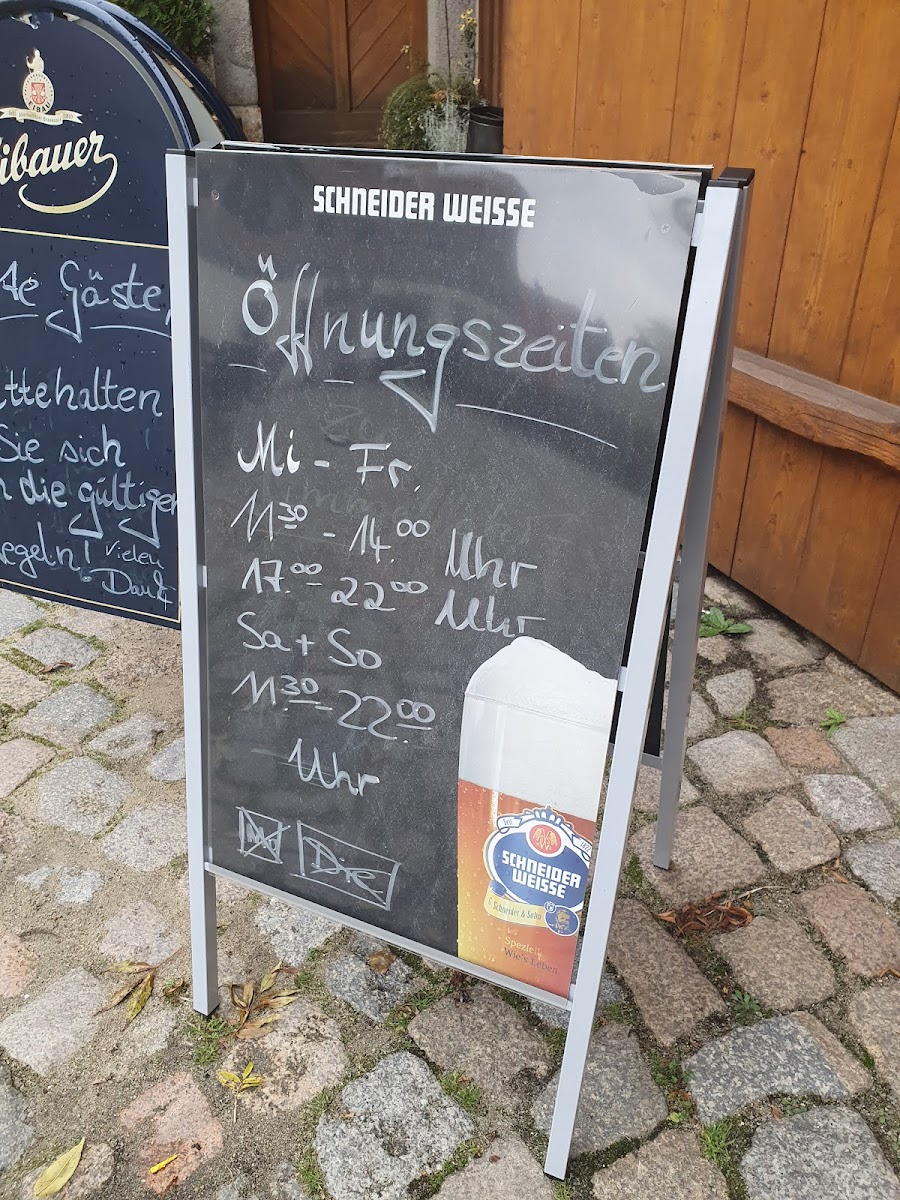 EIBAU
ibauer
te Gäste,
ttehalten
Sie sich
n die gültigen
egeln! Vielen
Dank
SCHNEIDER WEISSE
Öffnungszeiten
Mi - Fr.
11.30 - 14.00 Uhr
17.00 - 22.00 Uhr
Sa + So
11.30 - 22.00
Uhr
Mo Die
SCHNEIDER
WEISSE
G. Schneider & Sohn
Spezie
Wie's Leben